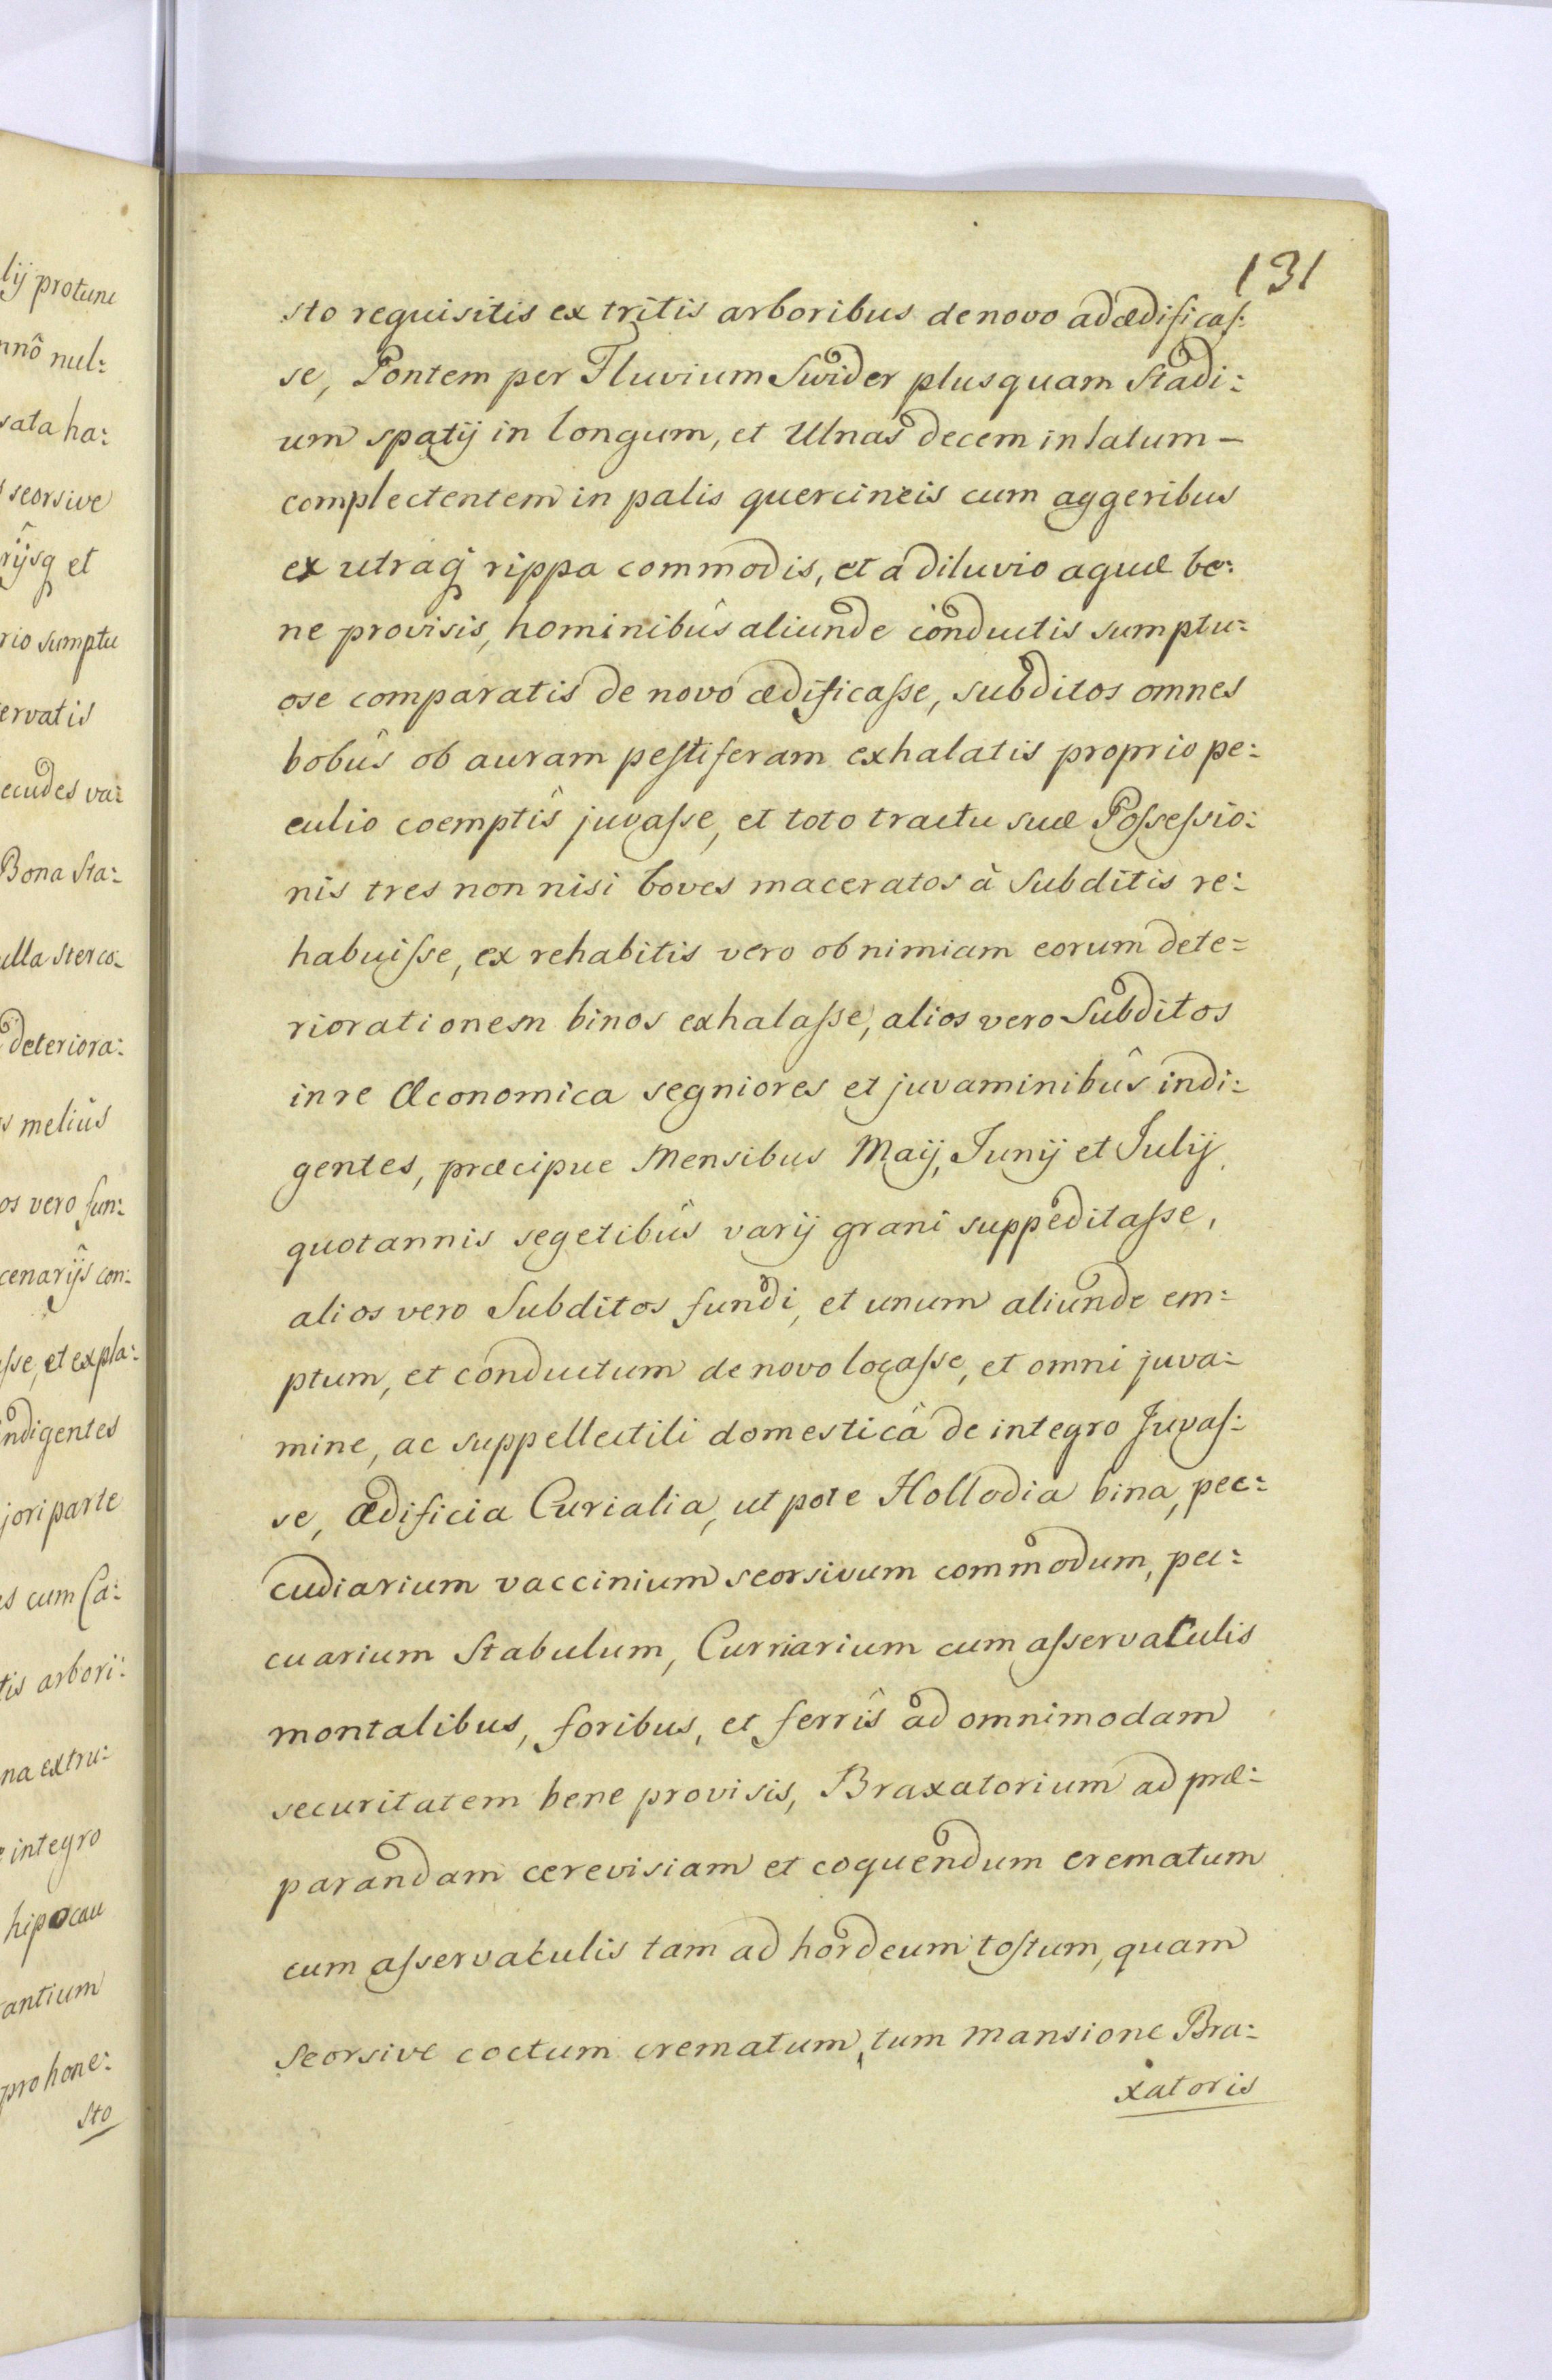 131
sto requisitis ex tritis arboribus de novo adædificaſ:
se, Pontem per Fluvium Swider plusquam Stadi:
um spatij in longum, et Ulnas decem in latum –
complectentem in palis quercineis cum aggeribus
ex utraq rippa commodis, et a diluvio aquæ be:
ne provisis, hominibûs aliunde conductis sumptu:
ose comparatis de novo ædificaſse, subditos omnes
bobûs ob auram peſtiferam exhalatis proprio pe:
culio coemptîs juvaſse, et toto tractu suæ Poſseſsio:
nis tres non nisi boves maceratos à Subditis re:
habuiſse, ex rehabitis vero ob nimiam eorum dete:
riorationem binos exhalaſse, alios vero Subditos
in re Œconomica segniores et juvaminibûs indi:
gentes, præcipue Mensibus Maij, Junij et Julij
quotannis segetibûs varij grani suppeditaſse,
alios vero Subditos fundi, et unum aliunde em:
ptum, et conductum de novo locaſse, et omni juva:
mine, ac suppellectili domesticâ de integro Juvaſ:
se, Ædificia Curialia, ut pote Hollodia bina, pec:
cudiarium vaccinium seorsivum commodum, pec:
cuarium Stabulum, Curriarium cum aſservaculis
montalibus, foribus, et ferrîs ad omnimodam
securitatem bene provisis, Braxatorium ad præ:
parandam cerevisiam et coquendum crematum
cum aſservaculis tam ad hordeum toſtum, quam
seorsive coctum crematum, tum mansione Bra:
xatoris
lij protunc
nnô nul:
sata ha:
seorsive
rijsq et
rio sumptu
ervatis
ecudes va:
Bona Sta:
ulla sterco:
deteriora:
s meliûs
os vero fun:
cenarijs con:
ſse, et expla:
indigentes
jori parte
es cum Ca:
tis arbori:
na extru:
e integro
hipocau
rantium
pro hone:
sto